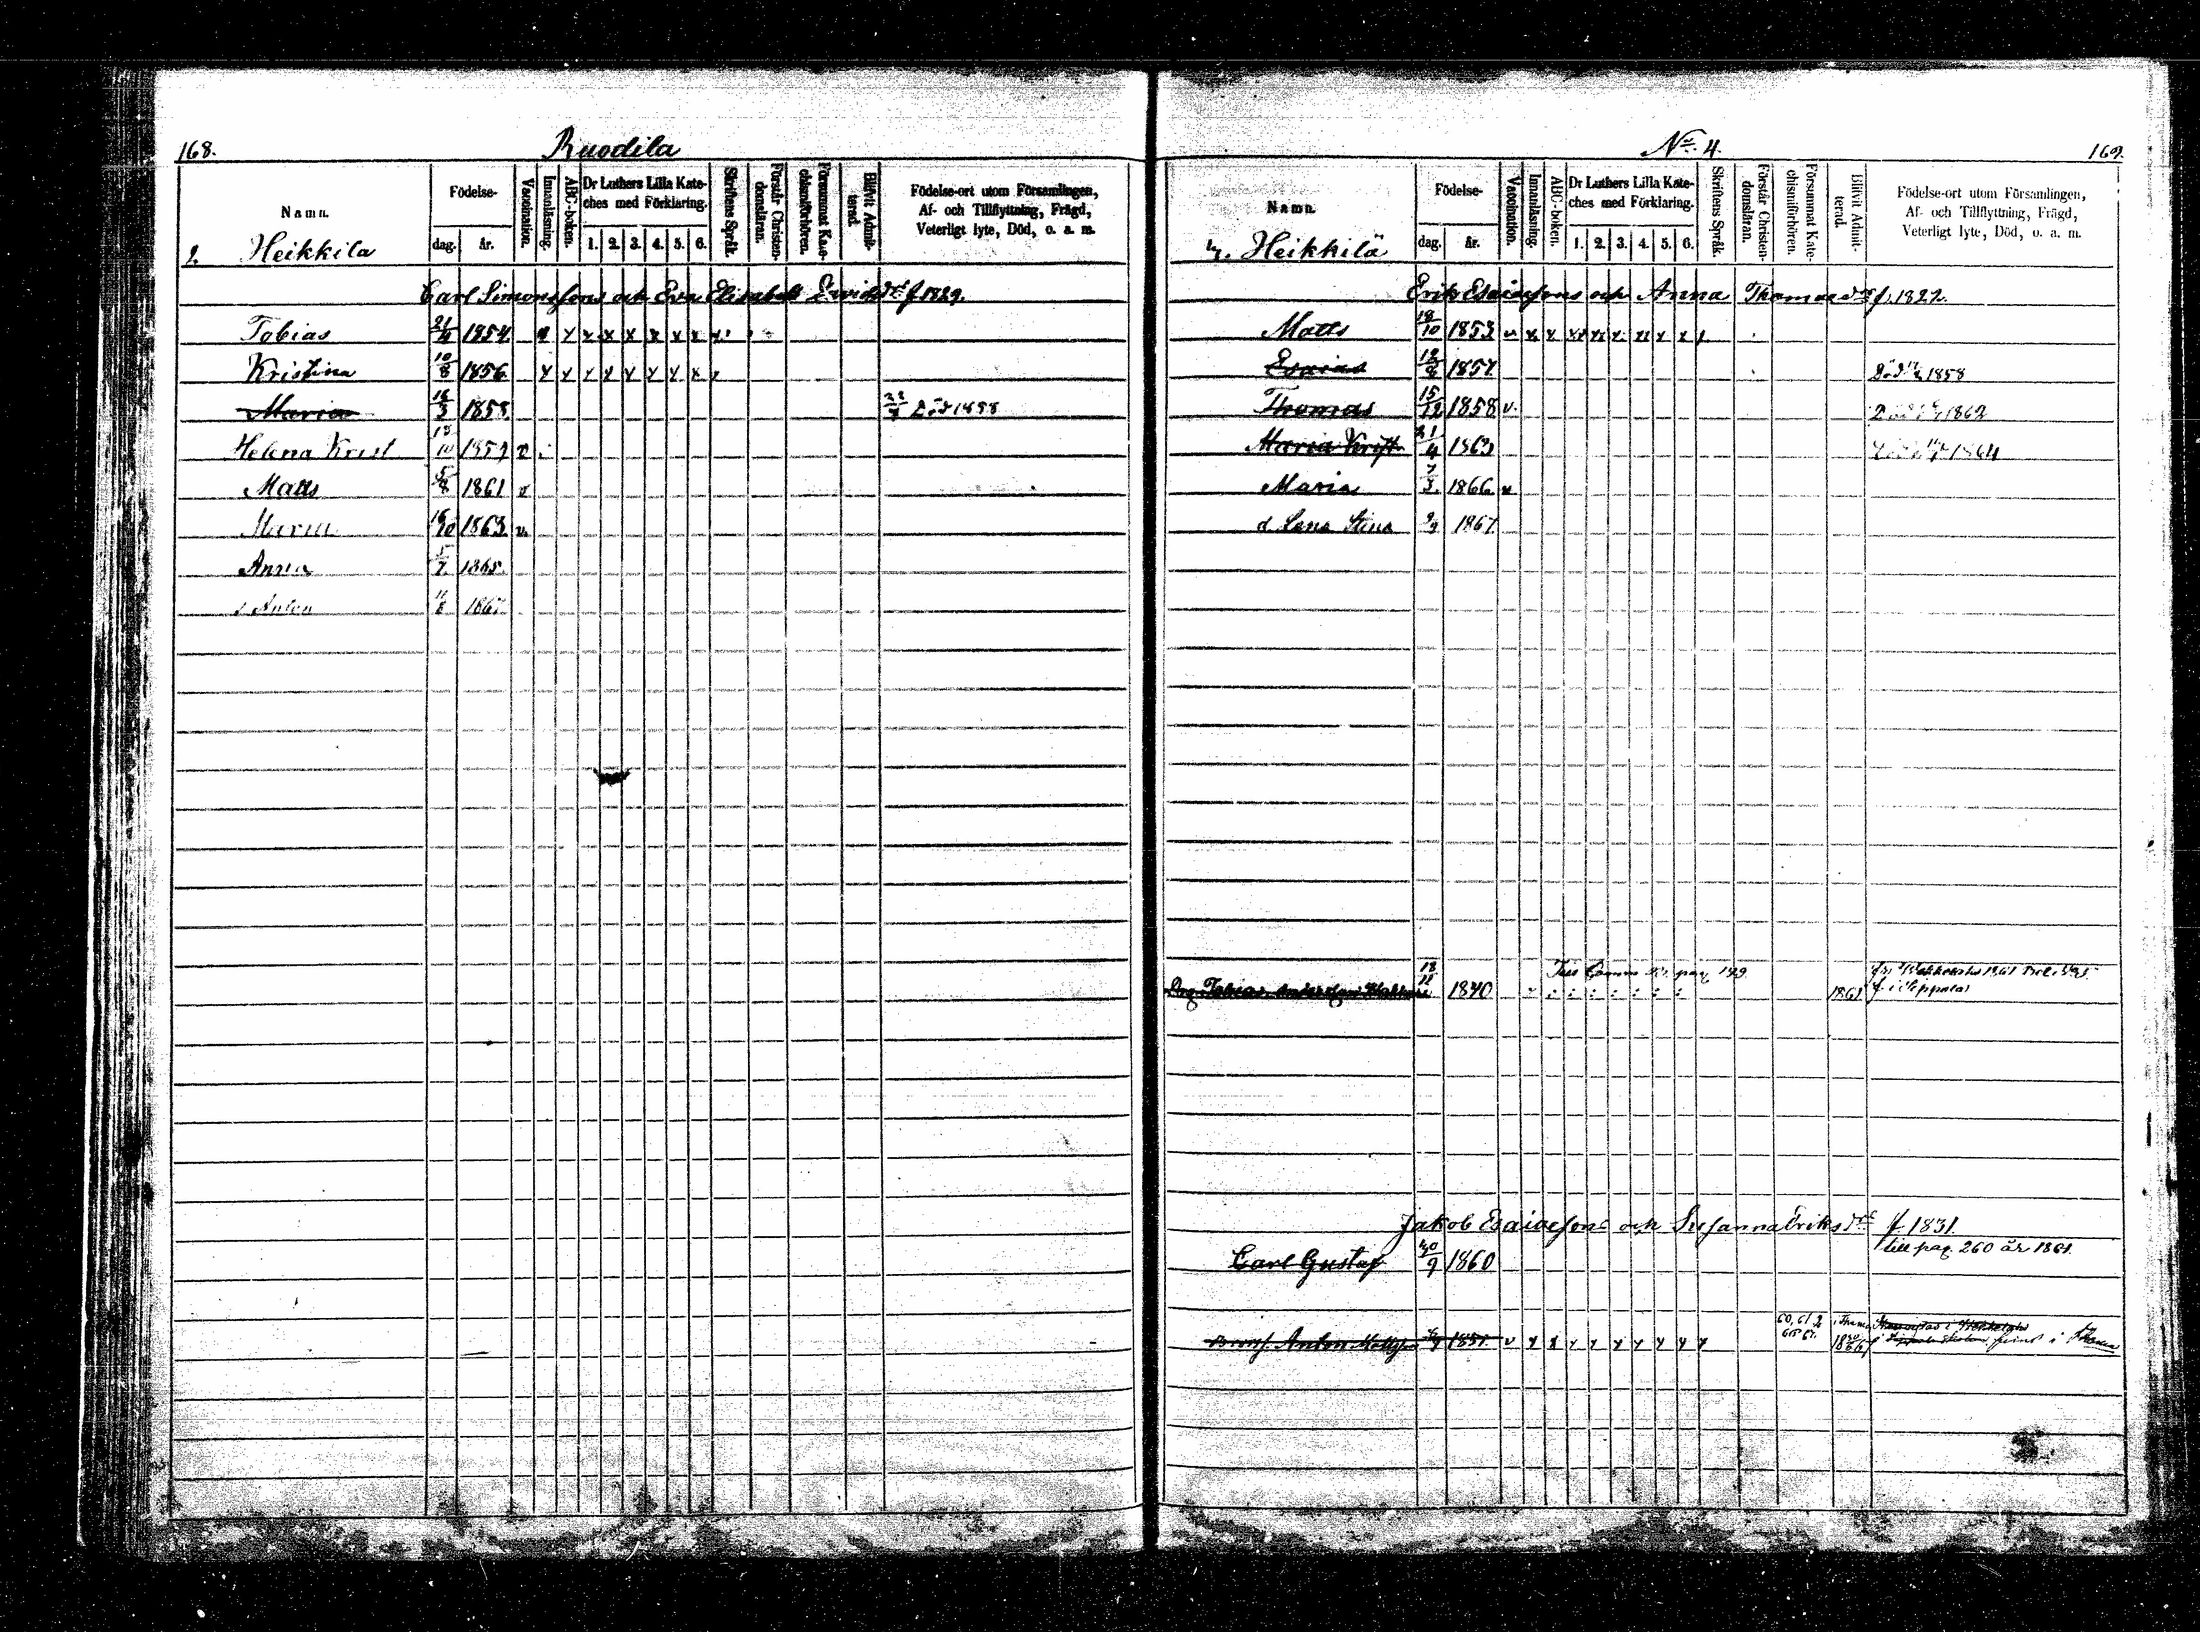 168. Ruodila
Namn.
Födelse-
dag. år.
Vaccination.
Innanläsning.
ABC-boken.
Dr Luthers Lilla Kate-
ches med Förklaring.
1. 2. 3. 4. 5. 6.
Skriftens Språk.
Förstår Christen-
domsläran.
Försummat Kate-
chismiförhören.
Blifvit Admit-
terad.
Födelse-ort utom Församlingen,
Af- och Tillflyttning, Frägd,
Veterligt lyte, Död, o. a. m.
2. Heikkila
Carl Simonsson och Eva Elisabet f 1829.
Tobias 21/4 1854 x x x x x x x
Kristina 10/8 1856 x x x x x x x x x
Maria 16/3 1858 23/4 Död 1858
Helena Krist 10 1859 v
Matts 5/8 1861 v
Maria 16/10 1863 v.
Anna 5/7 1865
Anton 11/8 1867
No. 4. 169.
Namn.
Födelse-
dag. år.
Vaccination.
Innanläsning.
ABC-boken.
Dr Luthers Lilla Kate-
ches med Förklaring.
1. 2. 3. 4. 5. 6.
Skriftens Språk.
Förstår Christen-
domsläran.
Försummat Kate-
chismiförhören.
Blifvit Admit-
terad.
Födelse-ort utom Församlingen,
Af- och Tillflyttning, Frägd,
Veterligt lyte, Död, o. a. m.
Heikkilä
Erik Esaiasson och Anna Thomasdr f. 1822.
Matts 18/10 1853
Esaias 1857 Död 1858
Thomas 15/12 1858 v. 1862
Maria Krist 21/4 1863 1864
Maria 7/3. 1866 v
d Lena Stina 9/9 1867.
Tobias Andersson 18/11 1840 pag 199 1861
Jakob Esaiasson och Susanna Eriksdr f 1831
till pag 260 år 1861.
Carl Gustaf 20/9 1860
Anton Mattsson 1851. v x x x x x x x x x